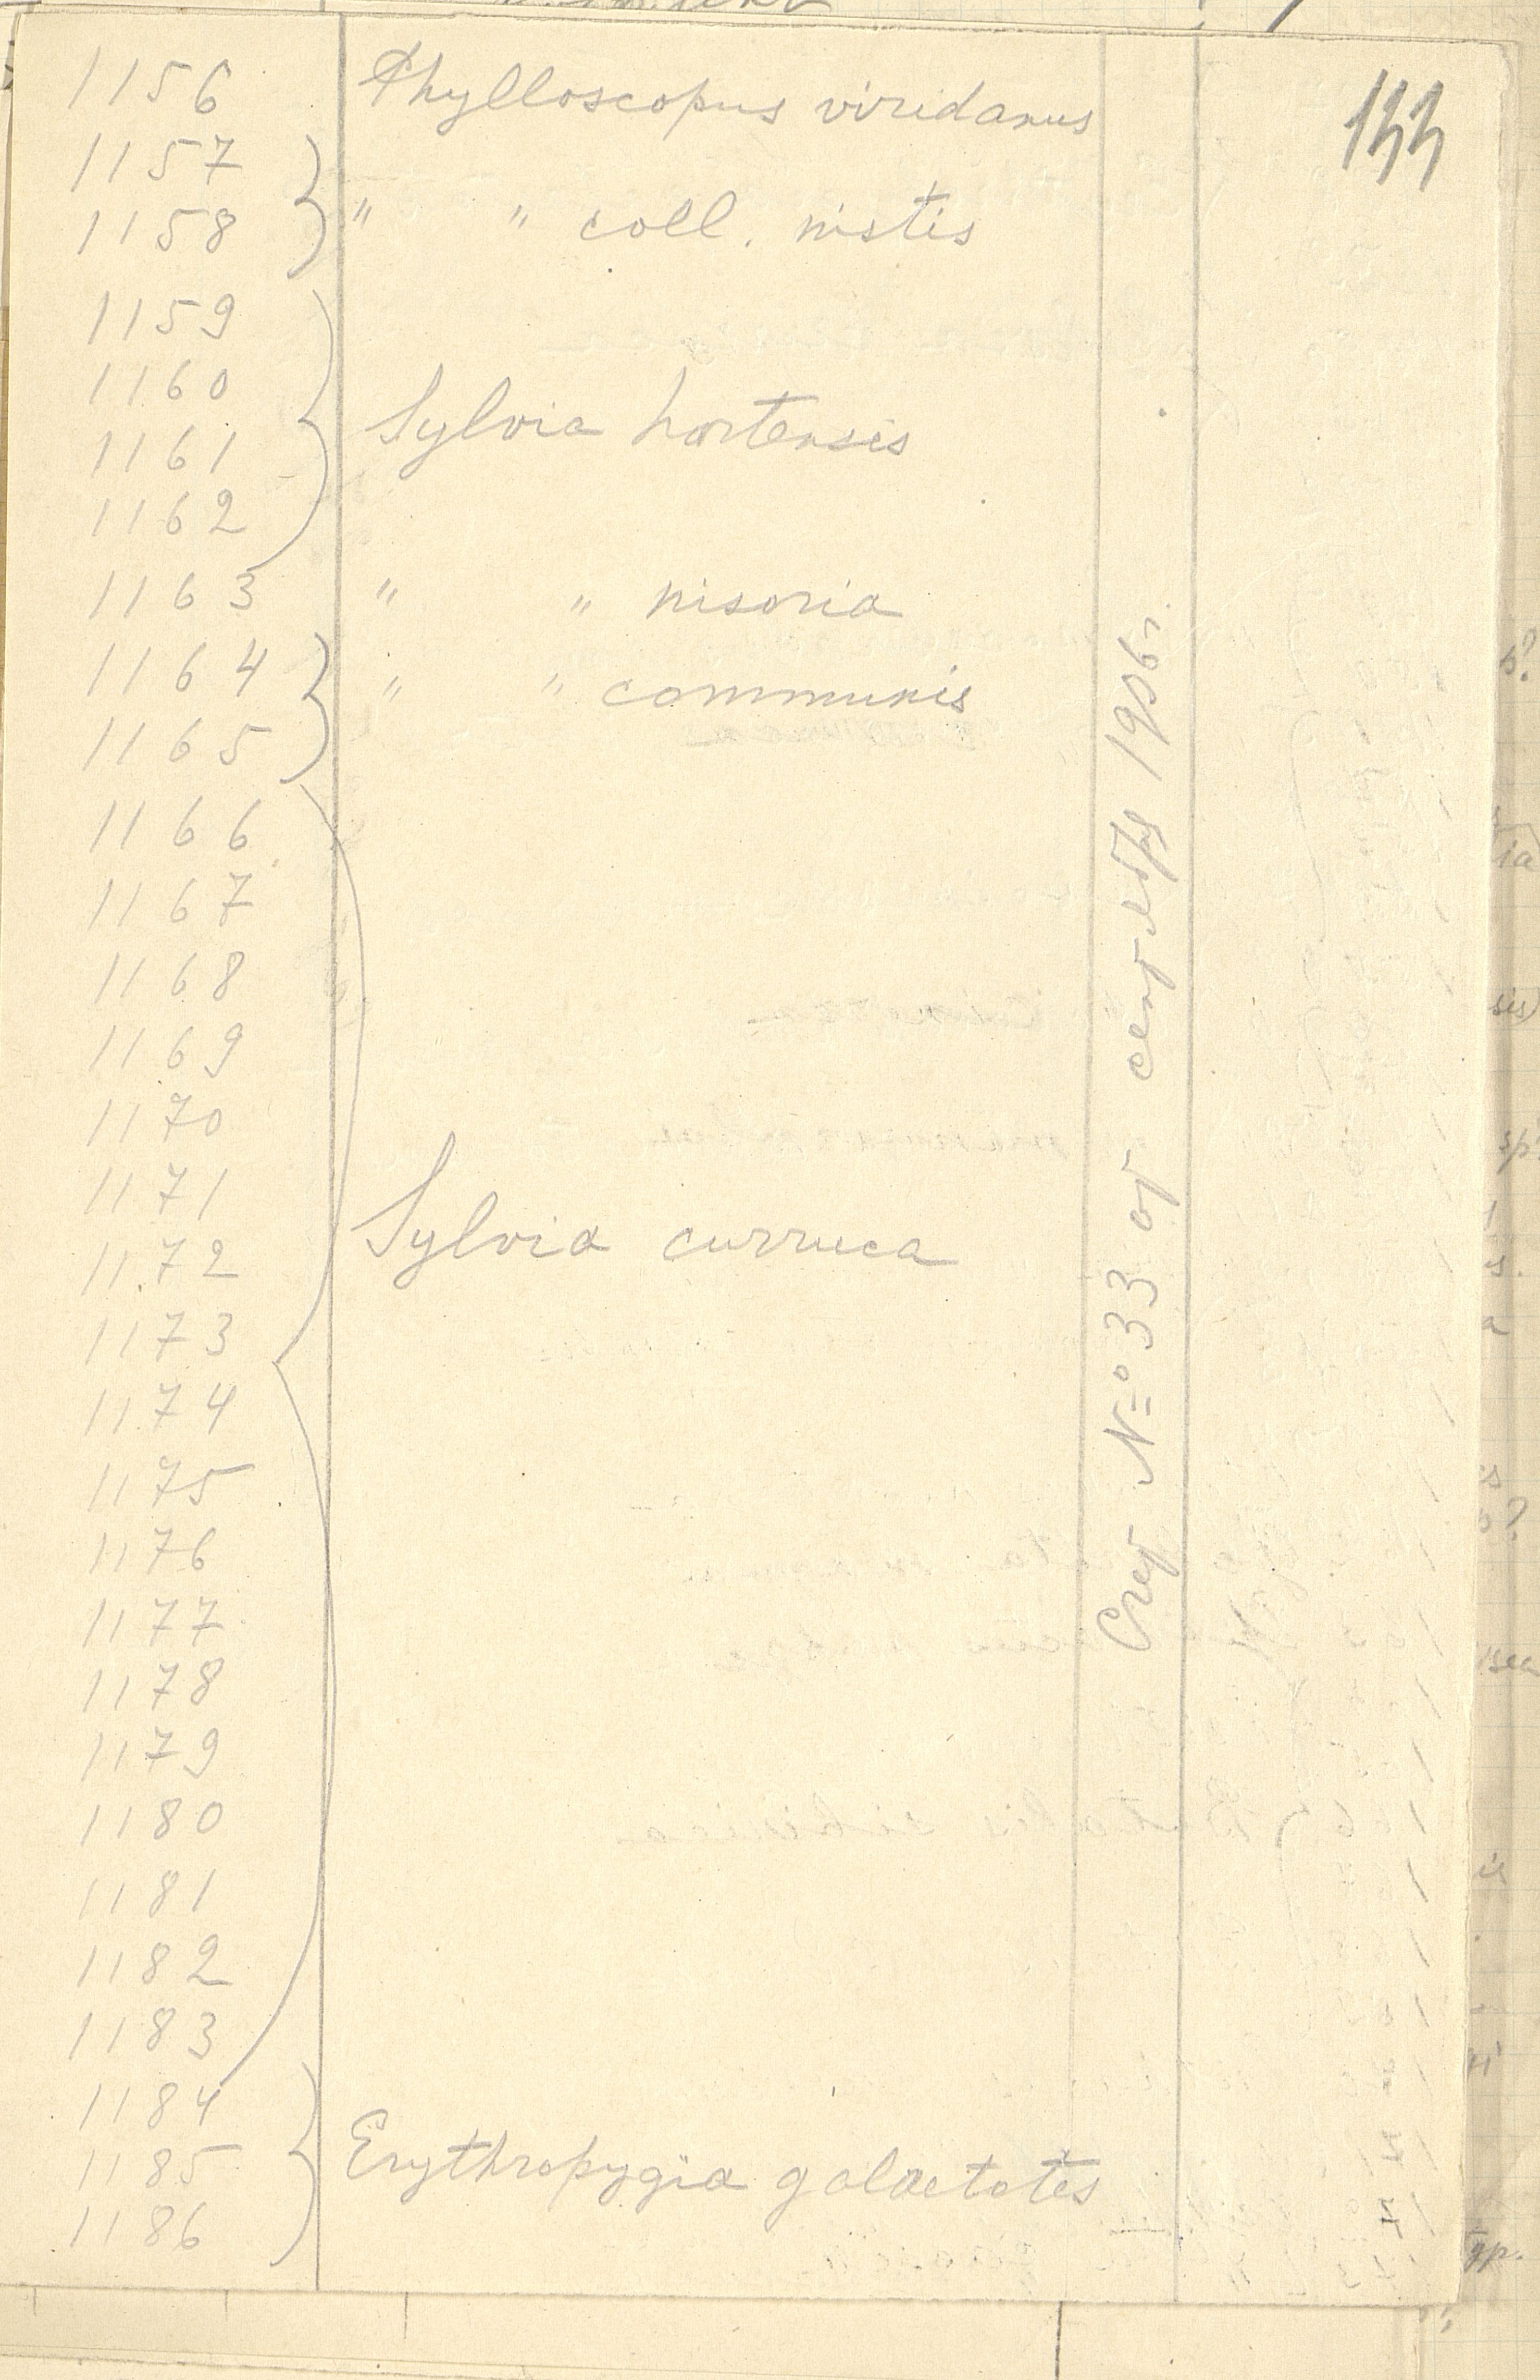 144
1156 Phylloscopus viridanus
1157
1158 " " coll. nistis
1159
1160
1161 Sylvia hortensis
1162
1163 " " nisoria
1164 " " communis
1165
1166
1167
1168
1169
1170
1171
1172 Sylvia curruca
1173
1174
1175
1176
1177
1178
1179
1180
1181
1182
1183
1184
1185 Erythropygia galactotes
1186
Счет № 33 от сентября 1906 г.